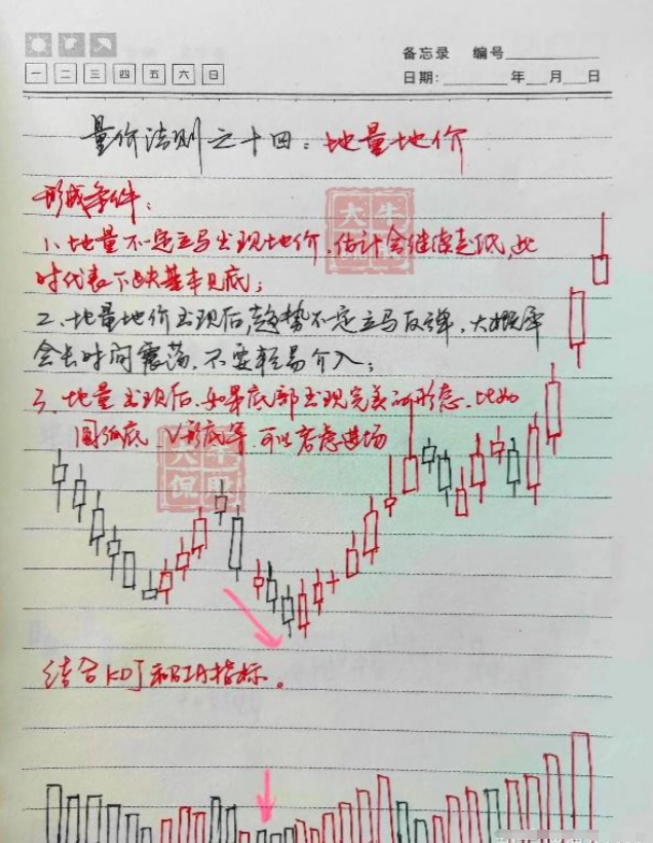 备忘录 编号
一 二 三 四 五 六 日
日期: 年 月 日
量价法则之十四：地量地价
大牛
形成条件：
1、地量不一定立马出现地价，估计会继续走低，此
时代表下跌基本见底；
2、地量地价出现后，趋势不一定立马反弹，大概率
会长时间震荡，不要轻易介入；
3、地量出现后，如果底部出现完美的形态，比如
圆弧底、V形底等，可以考虑进场
大牛
侃股
结合KDJ和BIA指标。